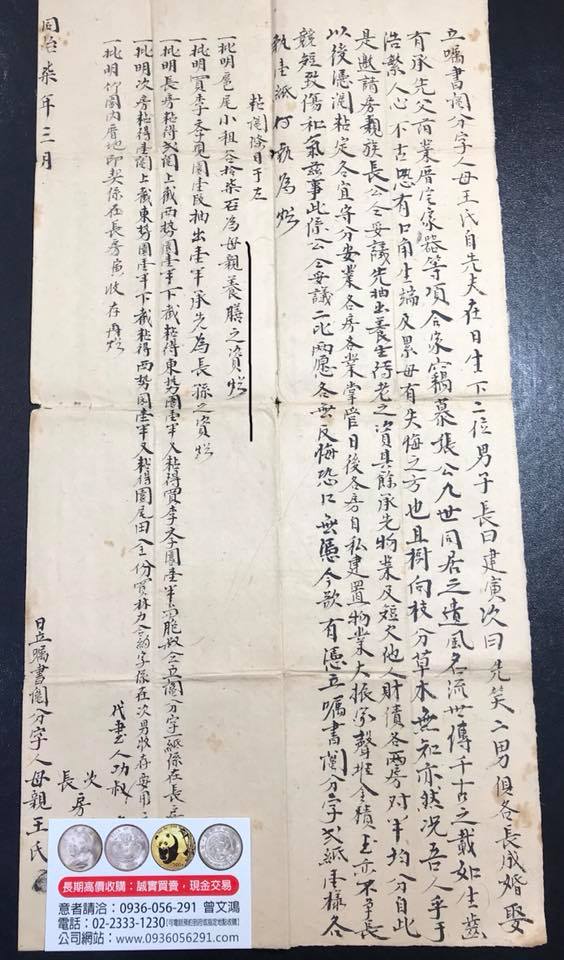 立囑書鬮分字人母王氏自先夫在日生下二位男子長曰建寅次曰先笑二男俱各長成婚娶
有承先父商業厝宅家器等項合家竊慕張公九世同居之遺風名流世傳千古之載如生齒
浩繁人心不古恐有口角生端及累母有失悔之方也且樹向枝分草木無知亦然況吾人乎于
是邀請房親族長公仝妥議先抽出養生待老之資其餘承先物業及短欠他人財債各兩房對半均分自此
以後憑鬮粘定各宜守分安業各房各業掌管日後各房自私建置物業大振家聲堆金積玉亦不爭長
競短致傷和氣茲事此係公仝妥議二比兩愿各無反悔恐口無憑今欲有憑立囑書鬮分字貳紙壹樣各
執壹紙付執為炤
粘鬮條目于左
一批明崑尾小租谷拾柒石為母親養膳之資炤
一批明買李孝觀園壹段抽出壹半承先為長孫之資炤
一批明長房粘得貳鬮上截西勢園壹半下截粘得東勢園壹半又粘得買李孝園壹半胞叔仝立鬮分字一紙係在長房
一批明次房粘得壹鬮上截東勢園壹半下截粘得西勢園壹半又粘得園尾田仝份買林力仝約字係在次男收存要用
一批明竹圍內厝地即契係在長房寅收存再炤
代書人功叔
次
長房
日立囑書鬮分字人母親王氏
同治柒年三月
長期高價收購：誠實買賣，現金交易
意者請洽：0936-056-291 曾文鴻
電話：02-2333-1230
(可電話預約到府或指定地點收購)
公司網站：www.0936056291.com